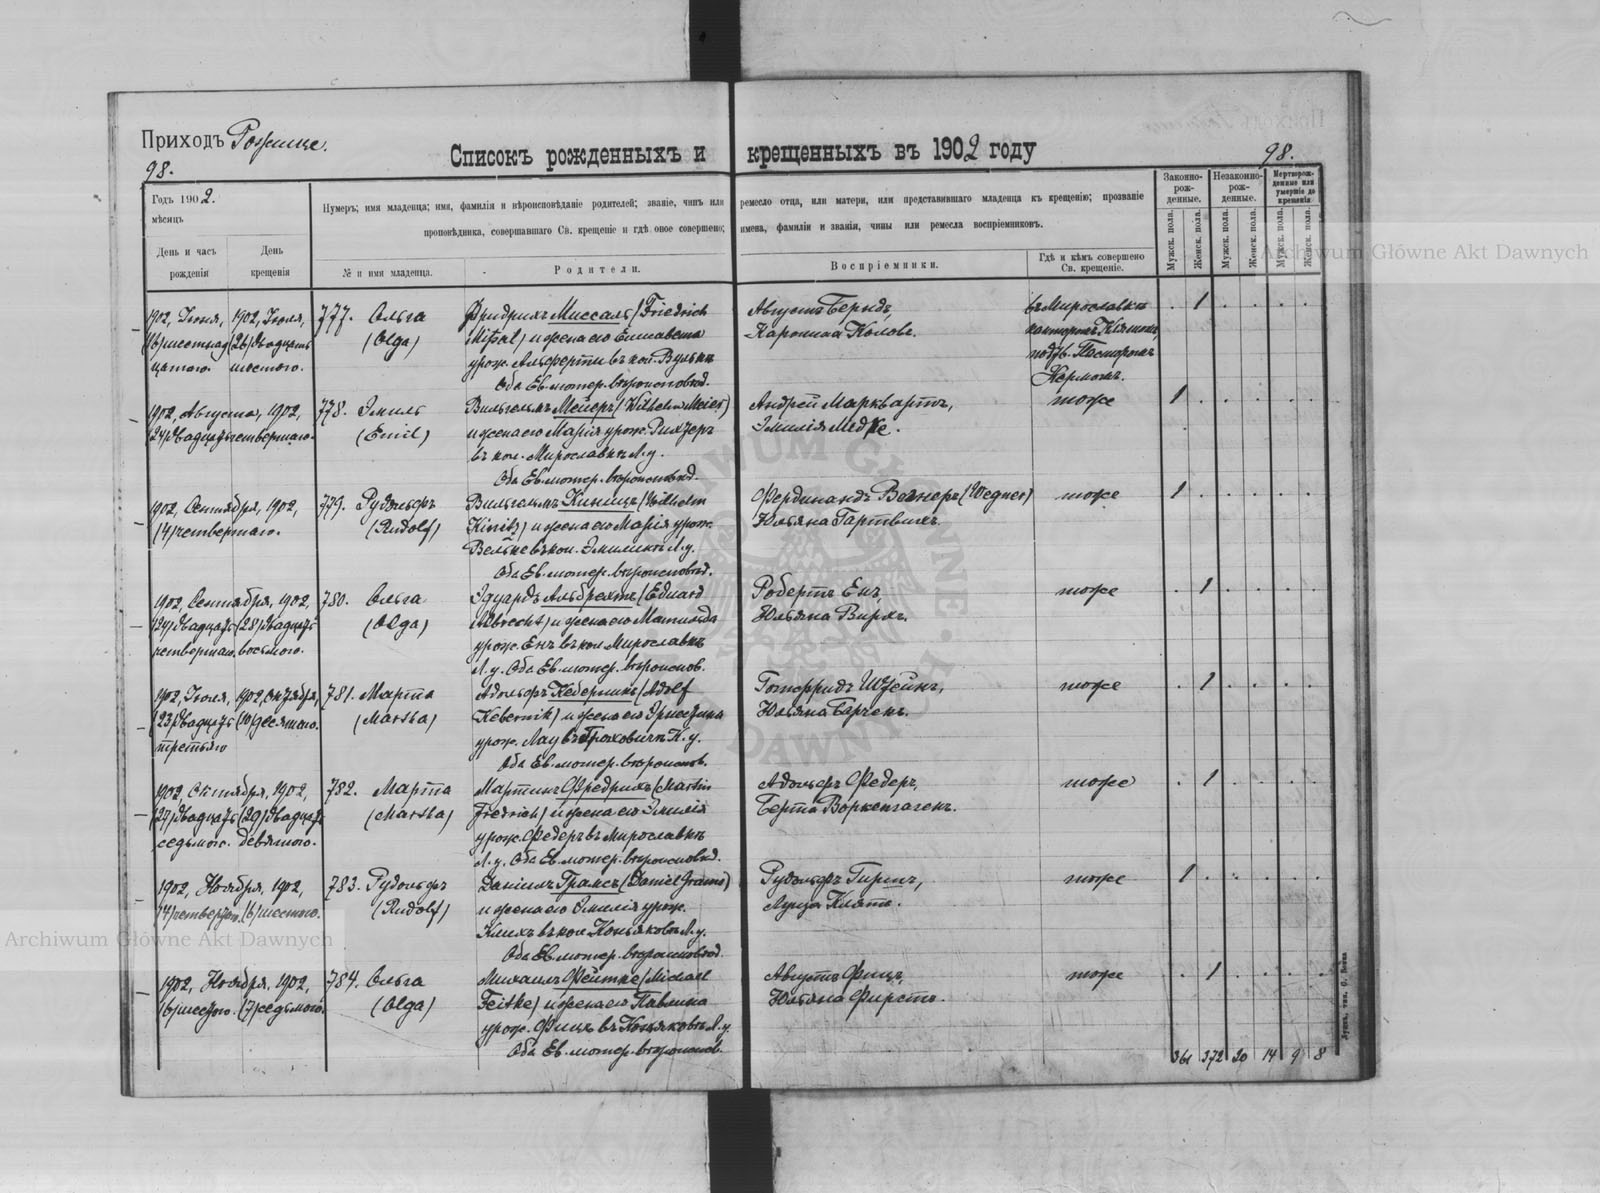 Приходъ Рожище.
98.
Списокъ рожденныхъ и крещенныхъ въ 1902 году
98.
Годъ 1902.
мѣсяцъ
День и часъ рожденія
День крещенія
Нумеръ; имя младенца; имя, фамилія и вѣроисповѣданіе родителей; званіе, чинъ или ремесло отца, или матери, или представившаго младенца къ крещенію; прозваніе
проповѣдника, совершавшаго Св. крещеніе и гдѣ оное совершено; имена, фамиліи и званія, чины или ремесла воспріемниковъ.
№ и имя младенца.
Родители.
Воспріемники.
Гдѣ и кѣмъ совершено Св. крещеніе.
Законно-рож-денные.
Незаконно-рож-денные.
Мертворож-денные или умершіе до крещенія
Мужск. пола.
Женск. пола.
Мужск. пола.
Женск. пола.
Мужск. пола.
Женск. пола.
1902, Іюня, 1902, Іюля, 777. Ольга Фридрихъ Миссаль (Friedrich Августъ Берндъ, въ Мирославкѣ 1
(26) двадцать (Olga) Mißal) и жена его Елисавета Каролина Коловъ.
шестого. урож. въ кол.
Оба Ев. лютер. вѣроисповѣд.
1902, Августа, 1902, 778. Эмиль Вильгельмъ Мейеръ (Wilhelm Meier) Андрей Марквартъ, тоже 1
(24) двадцать четвертаго. (Emil) и жена его Марія урож. Рихтеръ Эмилія Медке.
въ кол. Мирославкѣ Л. у.
Оба Ев. лютер. вѣроисповѣд.
1902, Сентября, 1902, 779. Рудольфъ Вильгельмъ Киницъ (Wilhelm Фердинандъ Вегнеръ (Wegner) тоже 1
(4) четвертаго. (Rudolf) Kinitz) и жена его Марія урож. Юльяна Гартвихъ.
въ кол. Л. у.
Оба Ев. лютер. вѣроисповѣд.
1902, Сентября, 1902, 780. Ольга Эдуардъ Альбрехтъ (Eduard Робертъ Енъ, тоже 1
(24) двадцать (28) двадцать (Olga) Albrecht) и жена его Матильда Юльяна Вирхъ.
четвертаго. восьмого. урож. Енъ въ кол. Мирославкѣ
Л. у. Оба Ев. лютер. вѣроиспов.
1902, Іюля, 1902, Октября, 781. Марта Адольфъ Кебернихъ (Adolf Готфридъ Штейнъ, тоже 1
(23) двадцать (10) десятаго. (Martha) Kebernik) и жена его Эрнестина Юльяна Барченъ.
третьяго урож. Лау
Оба Ев. лютер. вѣроиспов.
1902, Октября, 1902, 782. Марта Мартинъ Фредрихъ (Martin Адольфъ Федеръ, тоже 1
(27) двадцать (29) двадцать (Martha) Fredrich) и жена его Эмилія Берта Воркентагенъ.
седьмого. девятаго. урож. Федеръ въ Мирославкѣ
Л. у. Оба Ев. лютер. вѣроисповѣд.
1902, Ноября, 1902, 783. Рудольфъ Даніилъ Грамсъ (Daniel Grams) Рудольфъ Гиринъ, тоже 1
(6) шестого. (Rudolf) и жена его Эмилія урож. Луиза Клатъ.
въ кол. Коньяковѣ Л. у.
Оба Ев. лютер. вѣроисповѣд.
1902, Ноября, 1902, 784. Ольга Михаилъ Фейтке (Michael Августъ Фицъ, тоже 1
(6) шестого. (7) седьмого. (Olga) Feitke) и жена его Павлина Юльяна Фирстъ.
урож. Фицъ въ Коньяковѣ Л. у.
Оба Ев. лютер. вѣроиспов.
361 372 20 14 9 8
Archiwum Główne Akt Dawnych
Archiwum Główne Akt Dawnych